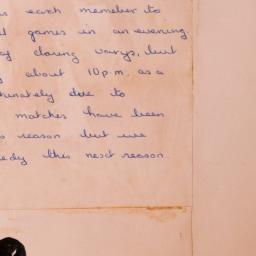 each member to
games in an evening
closing varys, but
about 10 p.m. as a
tunately due to
matches have been
reason but we
edy this next reason.